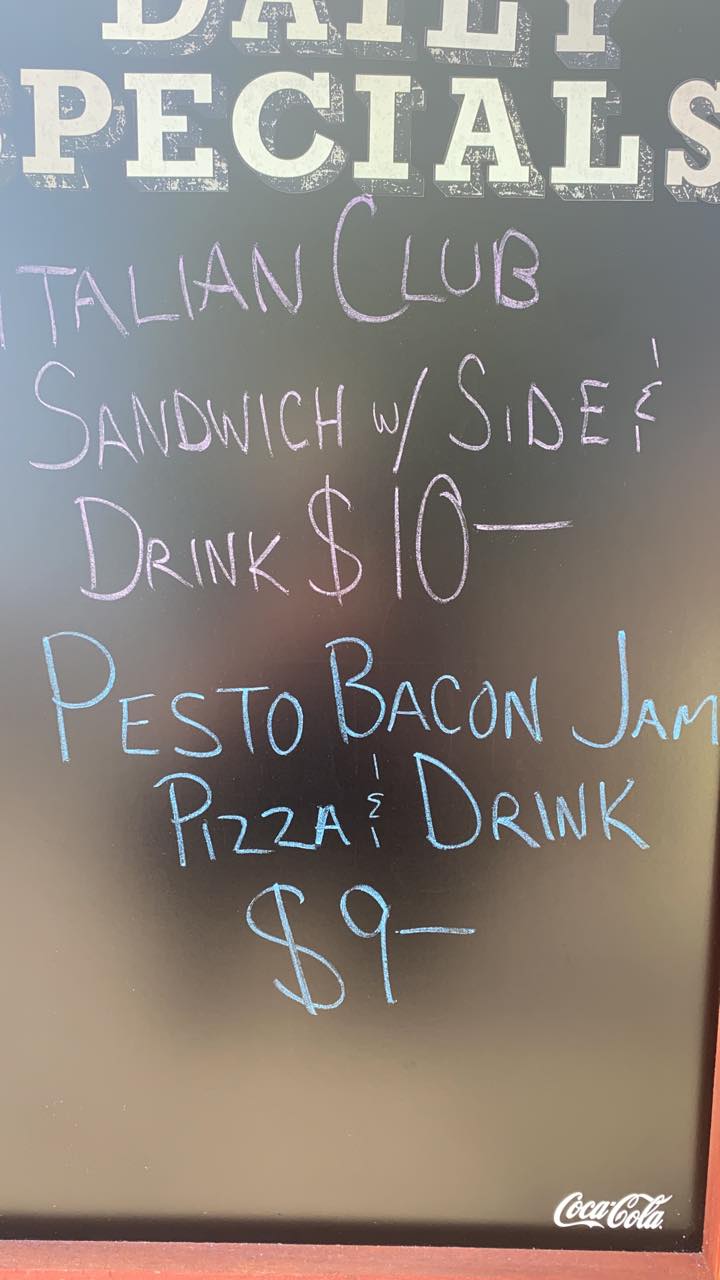 DAILY
SPECIALS
ITALIAN CLUB
SANDWICH w/ SIDE &
DRINK $10—
PESTO BACON JAM
PIZZA & DRINK
$9—
Coca-Cola